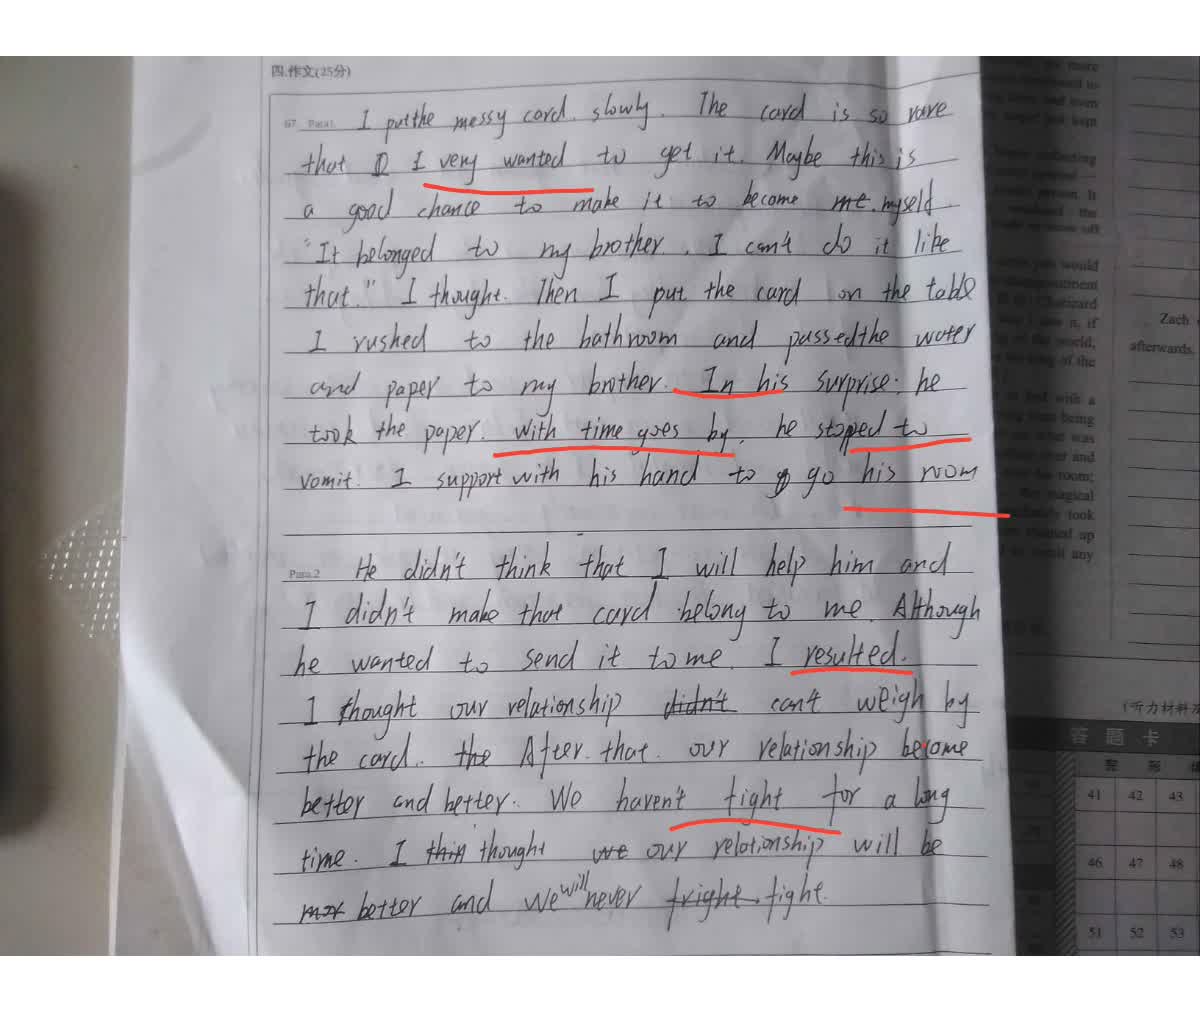 四.作文(25分)
67. Para1 I put the messy card. slowly. The card is so rare
that I very wanted to get it. Maybe this is
a good chance to make it to become me. myself
"It belonged to my brother. I can't do it like
that." I thought. Then I put the card on the table
I rushed to the bathroom and passed the water
and paper to my brother. In his surprise. he
took the paper. With time goes by. he stopped to
vomit. I support with his hand to go his room
Para.2 He didn't think that I will help him and
I didn't make that card belong to me. Although
he wanted to send it to me. I resulted.
I thought our relationship didn't can't weigh by
the card. the After that. our relationship become
better and better. We haven't fight for a long
time. I thin thought we our relationship will be
better and we will never fright fight.
Zach
afterwards.
(听力材料
答题卡
41 42 43
46 47 48
51 52 53